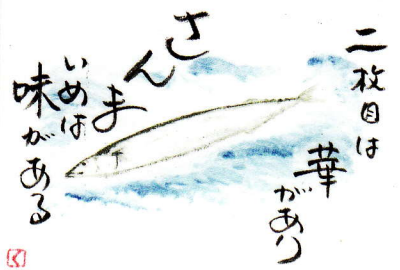 二枚目は
華があり
さんま
いめは
味がある
く